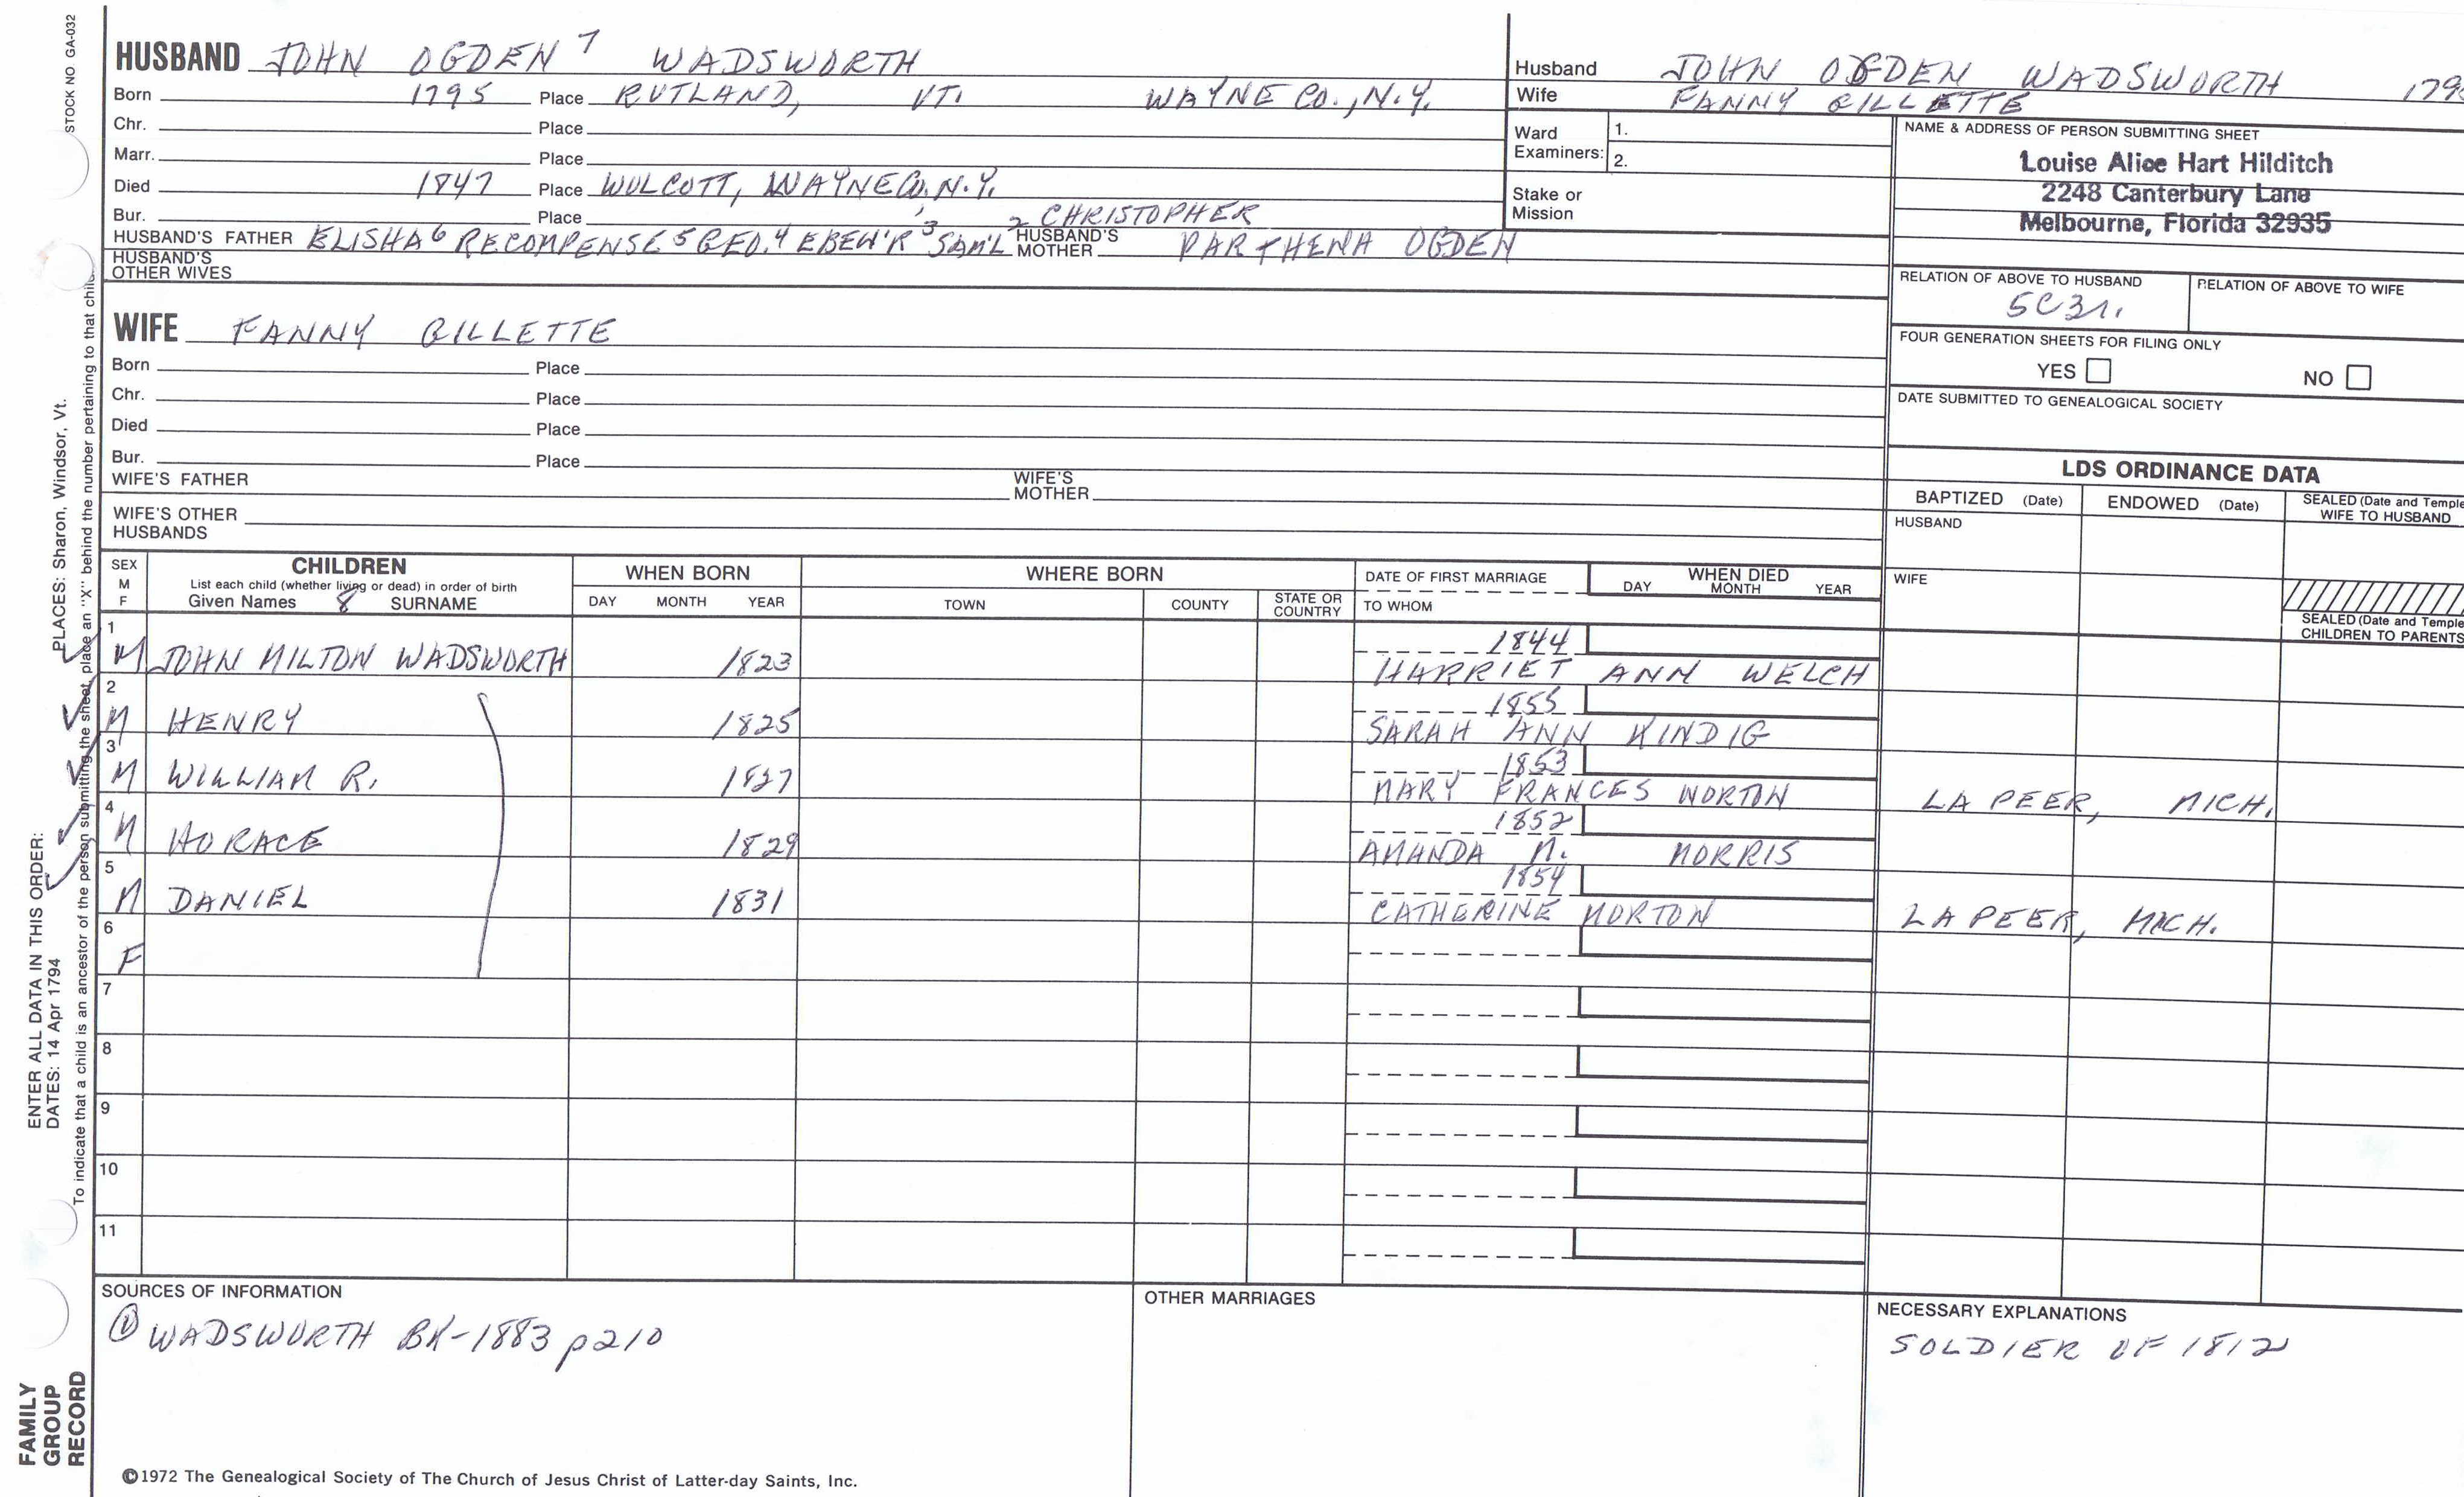 STOCK NO GA-032
HUSBAND JOHN OGDEN 7 WADSWORTH
Born 1795 Place RUTLAND, VT. WAYNE CO., N.Y.
Chr. Place
Marr. Place
Died 1847 Place WOLCOTT, WAYNE Co. N.Y.
Bur. Place 2 CHRISTOPHER
HUSBAND'S FATHER ELISHA 6 RECOMPENSE 5 GEO. 4 EBEN'R 3 SAM'L HUSBAND'S MOTHER PARTHENA OGDEN
HUSBAND'S OTHER WIVES
WIFE FANNY GILLETTE
Born Place
Chr. Place
Died Place
Bur. Place
WIFE'S FATHER WIFE'S MOTHER
WIFE'S OTHER HUSBANDS
Husband JOHN OGDEN WADSWORTH
Wife FANNY GILLETTE
Ward Examiners: 1.
2.
Stake or Mission
NAME & ADDRESS OF PERSON SUBMITTING SHEET
Louise Alice Hart Hilditch
2248 Canterbury Lane
Melbourne, Florida 32935
RELATION OF ABOVE TO HUSBAND RELATION OF ABOVE TO WIFE
5C3r.
FOUR GENERATION SHEETS FOR FILING ONLY
YES NO
DATE SUBMITTED TO GENEALOGICAL SOCIETY
LDS ORDINANCE DATA
BAPTIZED (Date) ENDOWED (Date) SEALED (Date and Temple
WIFE TO HUSBAND
HUSBAND
WIFE
SEALED (Date and Temple
CHILDREN TO PARENTS
SEX M F CHILDREN WHEN BORN WHERE BORN DATE OF FIRST MARRIAGE WHEN DIED
List each child (whether living or dead) in order of birth
Given Names 8 SURNAME DAY MONTH YEAR TOWN COUNTY STATE OR COUNTRY TO WHOM DAY MONTH YEAR
1 1844
M JOHN MILTON WADSWORTH 1823 HARRIET ANN WELCH
2 1855
M HENRY 1825 SARAH ANN KINDIG
3 1853
M WILLIAM R. 1827 MARY FRANCES NORTON LA PEER, MICH.
4 1852
M HORACE 1829 AMANDA M. MORRIS
5 1854
M DANIEL 1831 CATHERINE NORTON LA PEER, MICH.
6
F
7
8
9
10
11
SOURCES OF INFORMATION
① WADSWORTH BK-1883 p210
OTHER MARRIAGES
NECESSARY EXPLANATIONS
SOLDIER OF 1812
©1972 The Genealogical Society of The Church of Jesus Christ of Latter-day Saints, Inc.
FAMILY
GROUP
RECORD
ENTER ALL DATA IN THIS ORDER:
DATES: 14 Apr 1794
PLACES: Sharon, Windsor, Vt.
To indicate that a child is an ancestor of the person submitting the sheet, place an "X" behind the number pertaining to that child